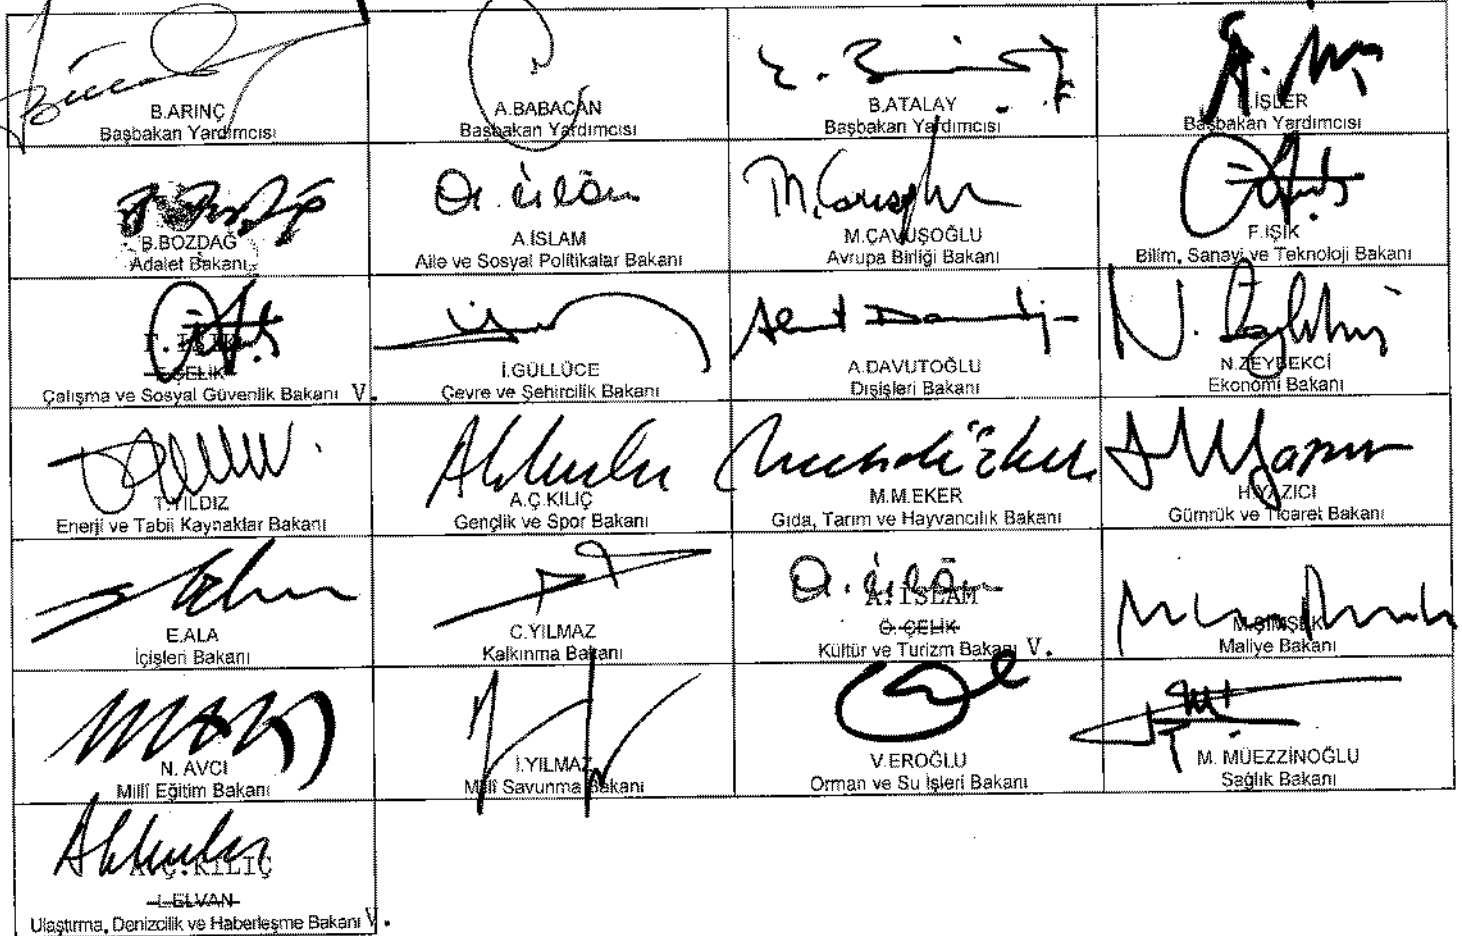 B.ARINÇ
Başbakan Yardımcısı
A.BABACAN
Başbakan Yardımcısı
B.ATALAY
Başbakan Yardımcısı
E.İŞLER
Başbakan Yardımcısı
B.BOZDAĞ
Adalet Bakanı
A.İSLAM
Aile ve Sosyal Politikalar Bakanı
M.ÇAVUŞOĞLU
Avrupa Birliği Bakanı
F.IŞIK
Bilim, Sanayi ve Teknoloji Bakanı
F. IŞIK
F.ÇELİK
Çalışma ve Sosyal Güvenlik Bakanı V.
İ.GÜLLÜCE
Çevre ve Şehircilik Bakanı
A.DAVUTOĞLU
Dışişleri Bakanı
N.ZEYBEKCİ
Ekonomi Bakanı
T.YILDIZ
Enerji ve Tabii Kaynaklar Bakanı
A.Ç.KILIÇ
Gençlik ve Spor Bakanı
M.M.EKER
Gıda, Tarım ve Hayvancılık Bakanı
H.YAZICI
Gümrük ve Ticaret Bakanı
E.ALA
İçişleri Bakanı
C.YILMAZ
Kalkınma Bakanı
A. İSLAM
Ö. ÇELİK
Kültür ve Turizm Bakanı V.
M.ŞİMŞEK
Maliye Bakanı
N. AVCI
Millî Eğitim Bakanı
İ.YILMAZ
Millî Savunma Bakanı
V.EROĞLU
Orman ve Su İşleri Bakanı
M. MÜEZZİNOĞLU
Sağlık Bakanı
A.Ç.KILIÇ
L.ELVAN
Ulaştırma, Denizcilik ve Haberleşme Bakanı V.